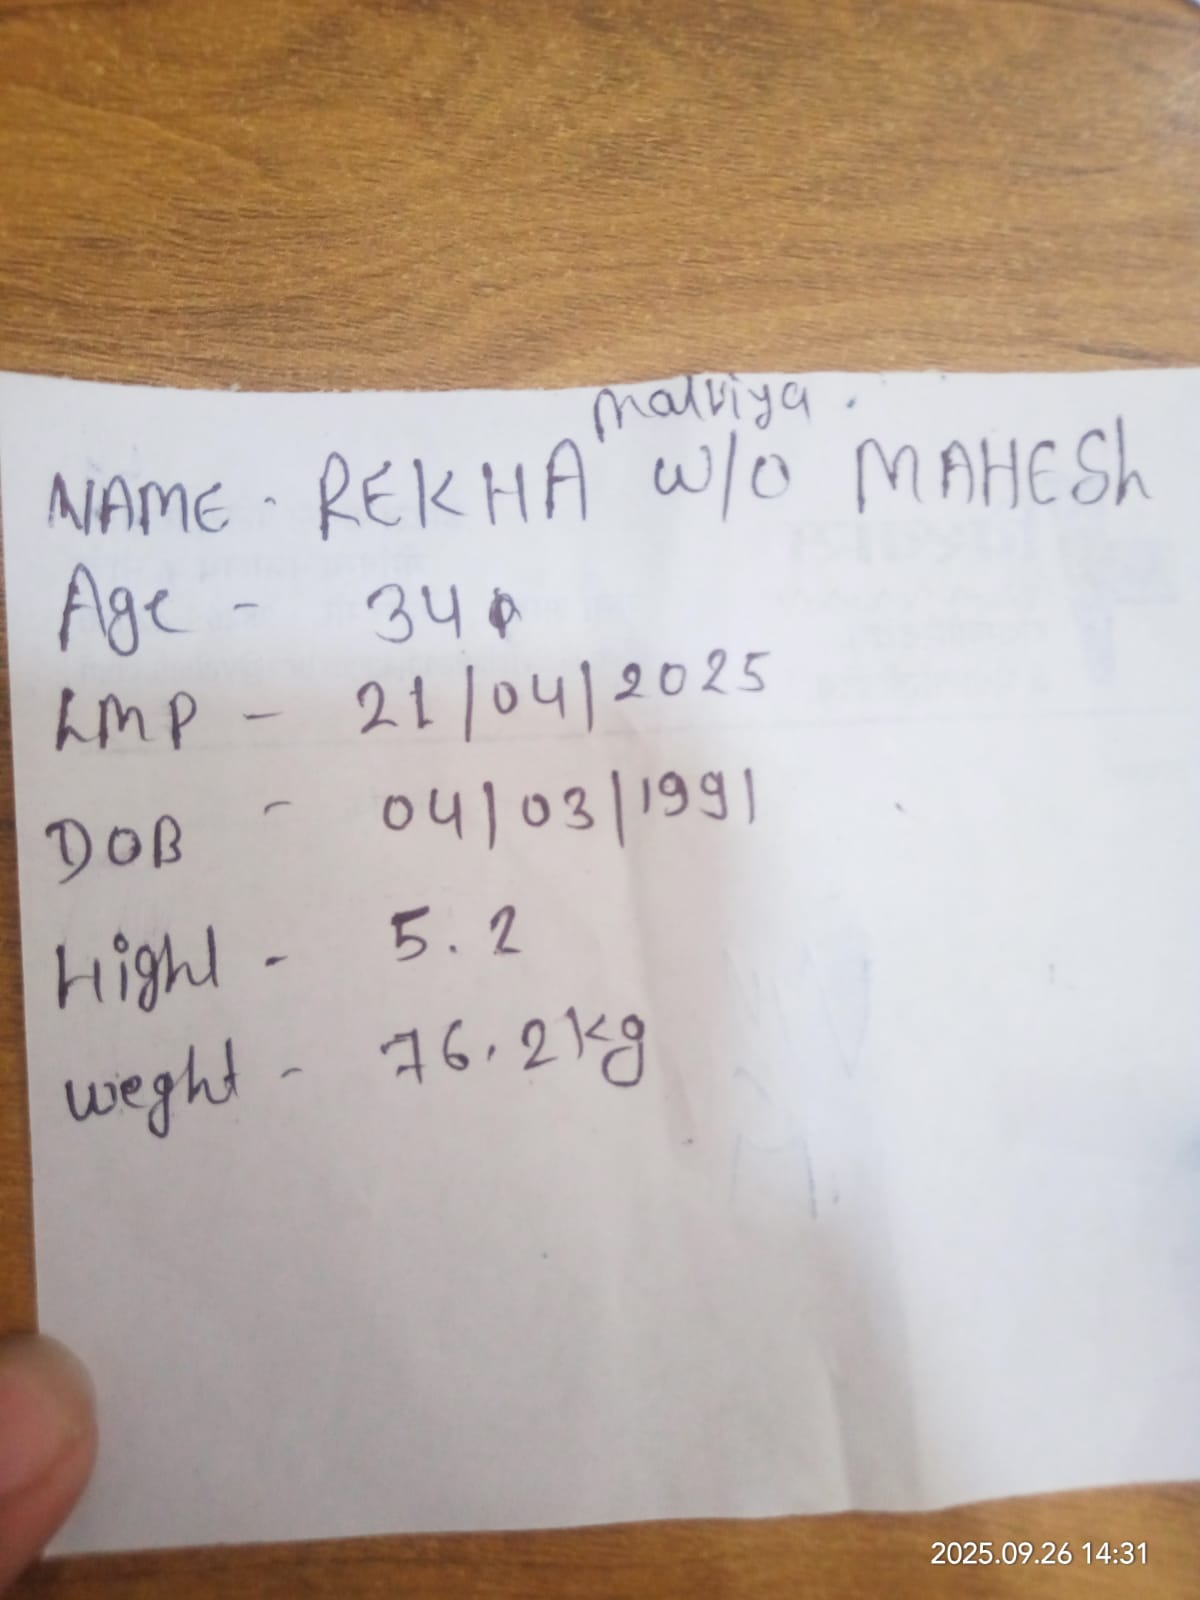 Malviya.
NAME - REKHA W/O MAHESh
Age - 34
LMP - 21/04/2025
DOB - 04/03/1991
Hight - 5.2
weght - 76.2kg
2025.09.26 14:31